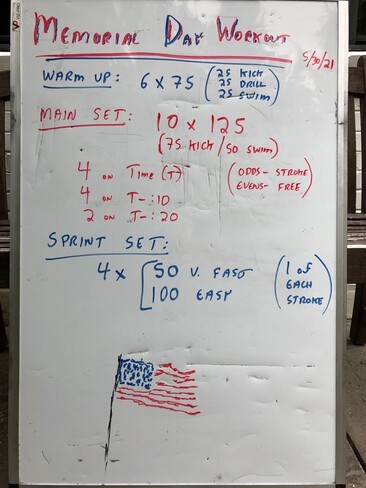 MEMORIAL DAY WORKOUT
5/30/21
WARM UP: 6 x 75 (25 KICK
25 DRILL
25 SWIM)
MAIN SET: 10 x 125
(75 KICK / 50 SWIM)
4 ON TIME (T) (ODDS - STROKE
4 ON T-:10 EVENS - FREE)
2 ON T-:20
SPRINT SET:
4 x [50 V. FAST (1 of
100 EASY EACH
STROKE)